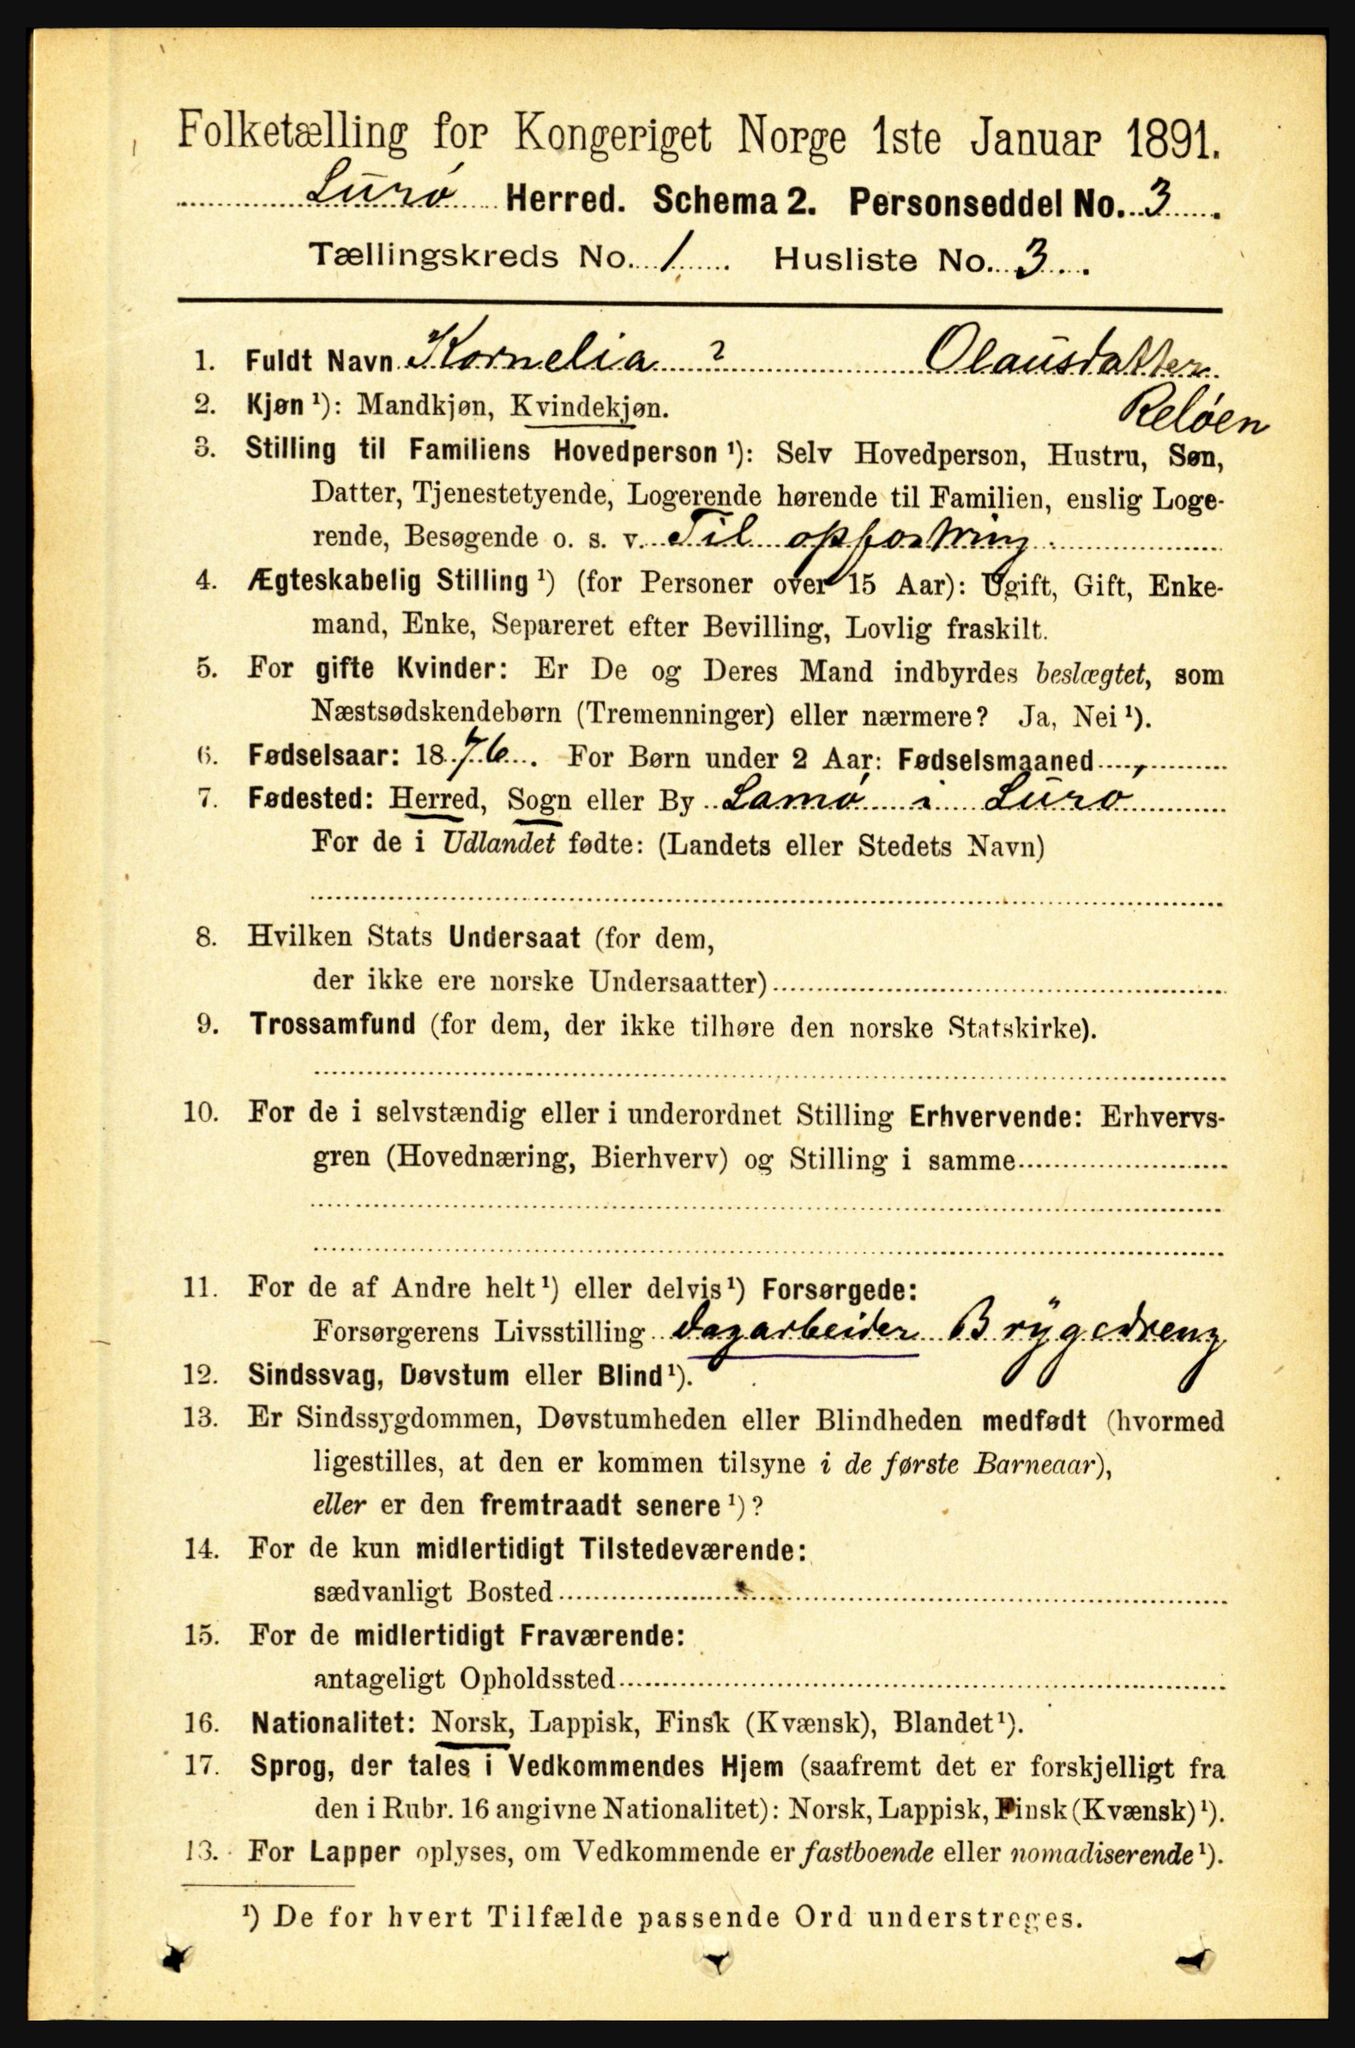 Folketælling for Kongeriget Norge 1ste Januar 1891.
Lurø Herred. Schema 2. Personseddel No. 3.
Tællingskreds No. 1. Husliste No. 3.
1. Fuldt Navn Kornelia ? Olausdatter
Reløen
2. Kjøn ¹): Mandkjøn, Kvindekjøn.
3. Stilling til Familiens Hovedperson ¹): Selv Hovedperson, Hustru, Søn,
Datter, Tjenestetyende, Logerende hørende til Familien, enslig Loge-
rende, Besøgende o. s. v. Til opfostring.
4. Ægteskabelig Stilling ¹) (for Personer over 15 Aar): Ugift, Gift, Enke-
mand, Enke, Separeret efter Bevilling, Lovlig fraskilt.
5. For gifte Kvinder: Er De og Deres Mand indbyrdes beslægtet, som
Næstsødskendebørn (Tremenninger) eller nærmere? Ja, Nei ¹).
6. Fødselsaar: 1876. For Børn under 2 Aar: Fødselsmaaned ,
7. Fødested: Herred, Sogn eller By Lamø i Lurø
For de i Udlandet fødte: (Landets eller Stedets Navn)
8. Hvilken Stats Undersaat (for dem,
der ikke ere norske Undersaatter)
9. Trossamfund (for dem, der ikke tilhøre den norske Statskirke).
10. For de i selvstændig eller i underordnet Stilling Erhvervende: Erhvervs-
gren (Hovednæring, Bierhverv) og Stilling i samme
11. For de af Andre helt ¹) eller delvis ¹) Forsørgede:
Forsørgerens Livsstilling dagarbeider Brÿgedreng
12. Sindssvag, Døvstum eller Blind ¹).
13. Er Sindssygdommen, Døvstumheden eller Blindheden medfødt (hvormed
ligestilles, at den er kommen tilsyne i de første Barneaar),
eller er den fremtraadt senere ¹)?
14. For de kun midlertidigt Tilstedeværende:
sædvanligt Bosted
15. For de midlertidigt Fraværende:
antageligt Opholdssted
16. Nationalitet: Norsk, Lappisk, Finsk (Kvænsk), Blandet ¹).
17. Sprog, der tales i Vedkommendes Hjem (saafremt det er forskjelligt fra
den i Rubr. 16 angivne Nationalitet): Norsk, Lappisk, Finsk (Kvænsk) ¹).
13. For Lapper oplyses, om Vedkommende er fastboende eller nomadiserende ¹).
¹) De for hvert Tilfælde passende Ord understreges.